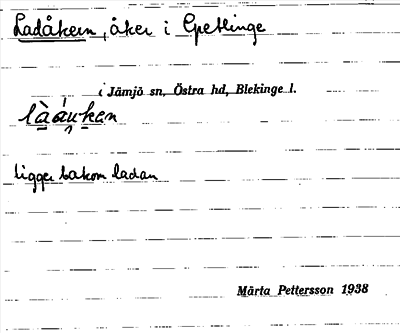 Ladåkern, åker i Gpetlinge
i Jämjö sn, Östra hd, Blekinge l.
ligger bakom ladan
Märta Pettersson 1938